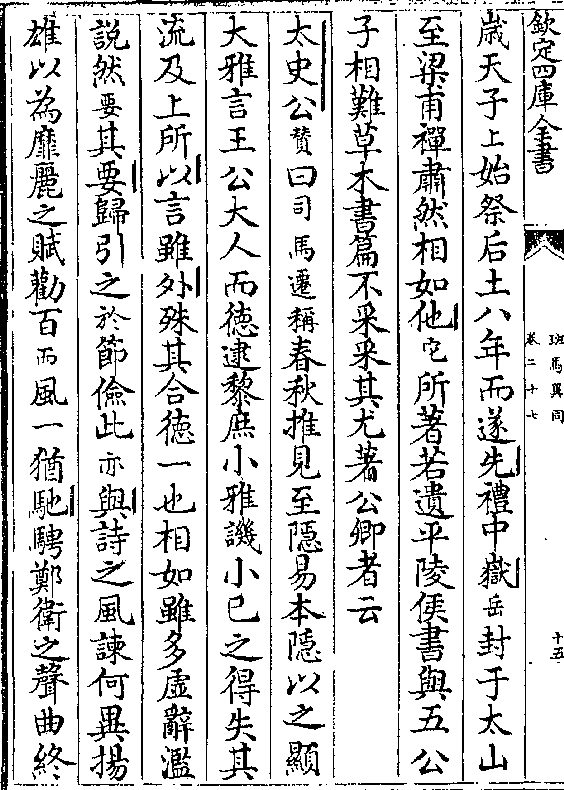 欽定四庫全書
班馬異同
卷二十七
十五
歲天子上始祭后土八年而遂先禮中嶽岳封于太山
至梁甫禪肅然相如他它所著若遺平陵侯書與五公
子相難草木書篇不采采其尤著公卿者云
太史公贊曰司馬遷稱春秋推見至隱易本隱以之顯
大雅言王公大人而德逮黎庶小雅譏小己之得失其
流及上所以言雖外殊其合德一也相如雖多虛辭濫
說然要其要歸引之於節儉此亦與詩之風諫何異揚
雄以為靡麗之賦勸百而風一猶馳騁鄭衛之聲曲終